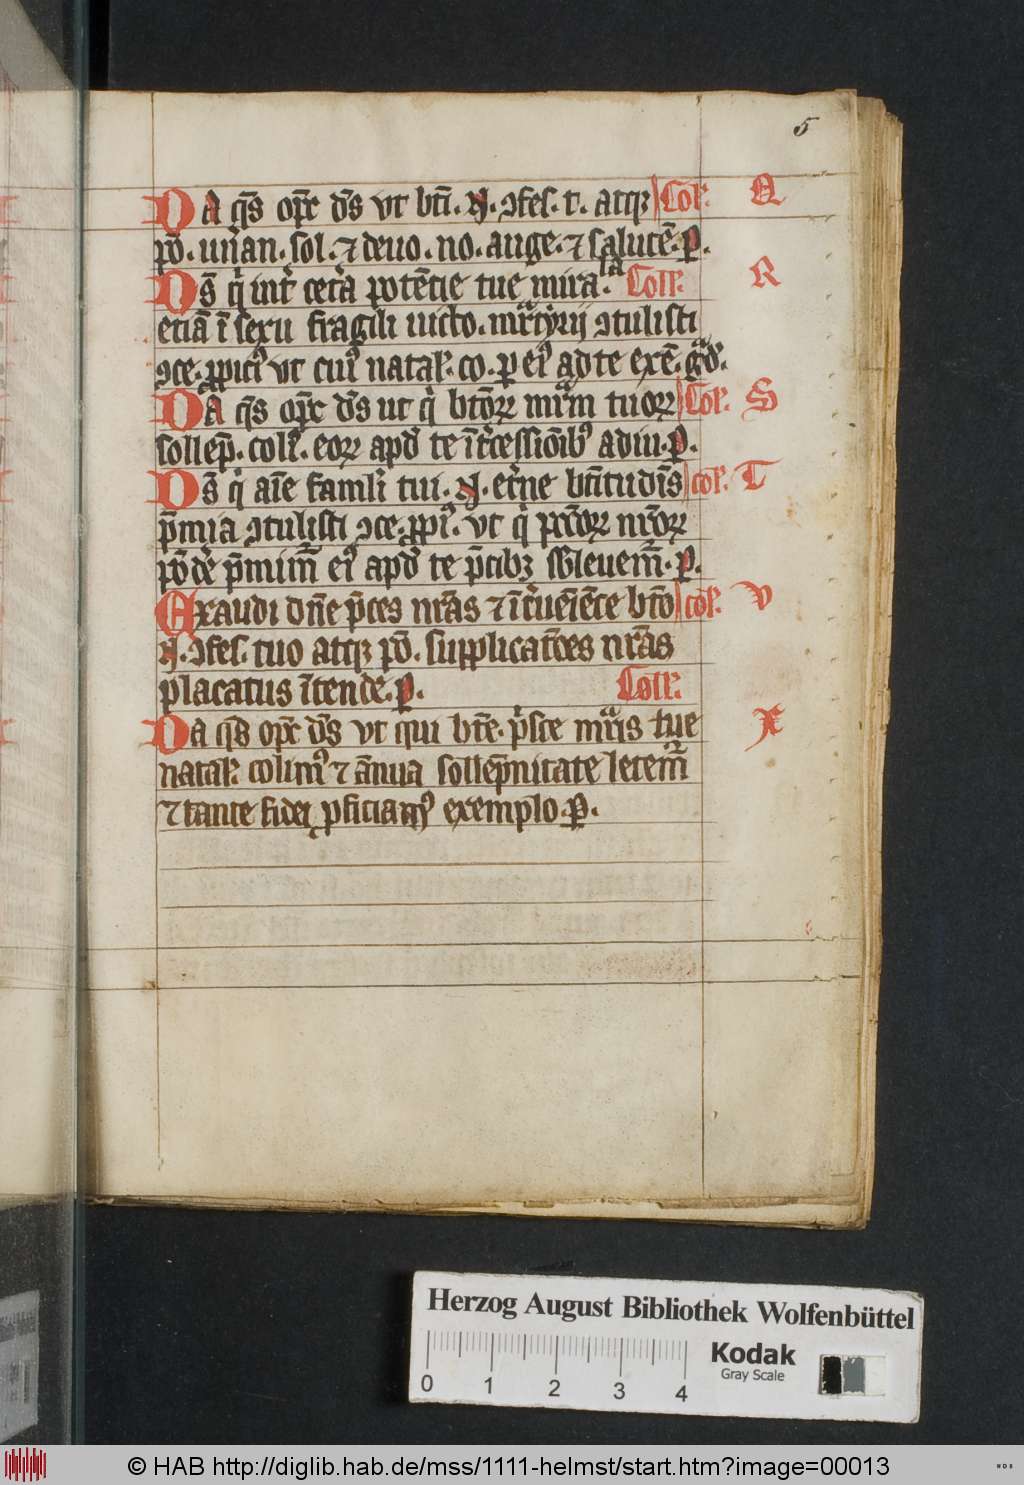 5
Da q̄s op̄c dn̄s vt bti. N. ↄfes. t. atqꝫ Col'. Q
pō. un̄an. sol. ⁊ deuo. no. auge. ⁊ salutē. P.
Ds̄ q̇ int̄ cet̄a potētie tue mira.la Coll'. R
etiā ī sexu fragili uicto. mr̄tyrij ↄtulisti
ↄce. ꝓpici' vt cui' natal'. co. p ei' ad te exē. g̃d'.
Da q̄s op̄c dn̄s ut q̇ btōꝝ mr̄m tuoꝝ Col'. S
sollēp. coll'. eoꝝ apd' te īt̄cessiōib' adiu. P.
Ds̄ q̇ aīe famuli tui. N. et̄ne btītudīs col'. T
p̄mia ↄtulisti ↄce. ꝓpi'. vt q̇ pccōꝝ nr̄oꝝ
pōde' p̄mim̄ ei' apd' te p̄cibꝫ sb̄leuem̄. P.
Exaudi dn̄e p̄ces nr̄as ⁊ īt̄ueīēte btō col'. V
N. ↄfes. tuo atqꝫ pō. supplicatōes nr̄as
placatus ītende. P. Coll'.
Da q̄s op̄c dn̄s vt qui btē. p̄sce mr̄is tue X
natal'. colim' ⁊ ānua sollēpnitate letem̄
⁊ tante fidei ꝓficiam' exemplo. P.
Herzog August Bibliothek Wolfenbüttel
0 1 2 3 4
Kodak
Gray Scale
© HAB http://diglib.hab.de/mss/1111-helmst/start.htm?image=00013